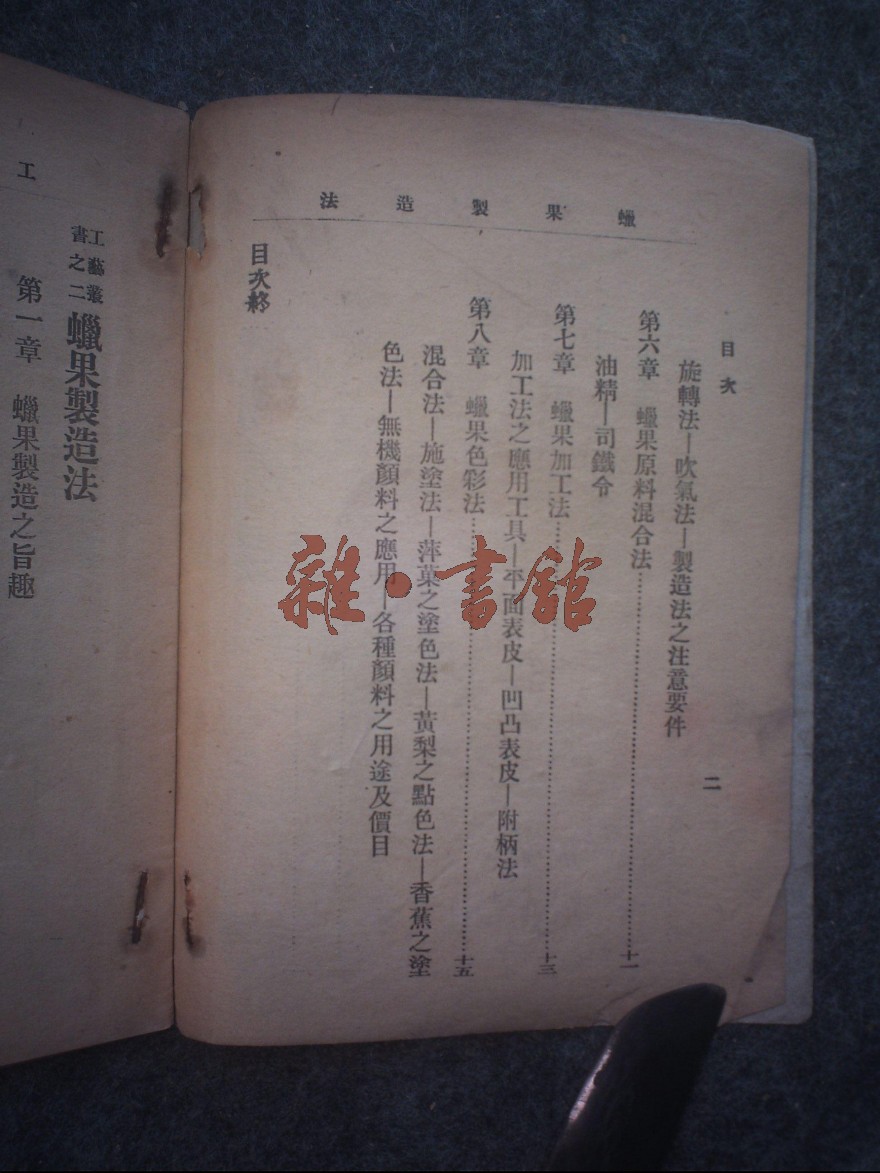 蠟果製造法
目次
二
旋轉法—吹氣法—製造法之注意要件
第六章 蠟果原料混合法……十一
油精—司鐵令
第七章 蠟果加工法……十三
加工法之應用工具—平面表皮—凹凸表皮—附柄法
第八章 蠟果色彩法……十五
混合法—施塗法—萍菓之塗色法—黃梨之點色法—香蕉之塗
色法—無機顏料之應用—各種顏料之用途及價目
目次終
工
工藝叢
書之二
蠟果製造法
第一章 蠟果製造之旨趣
雜·書館